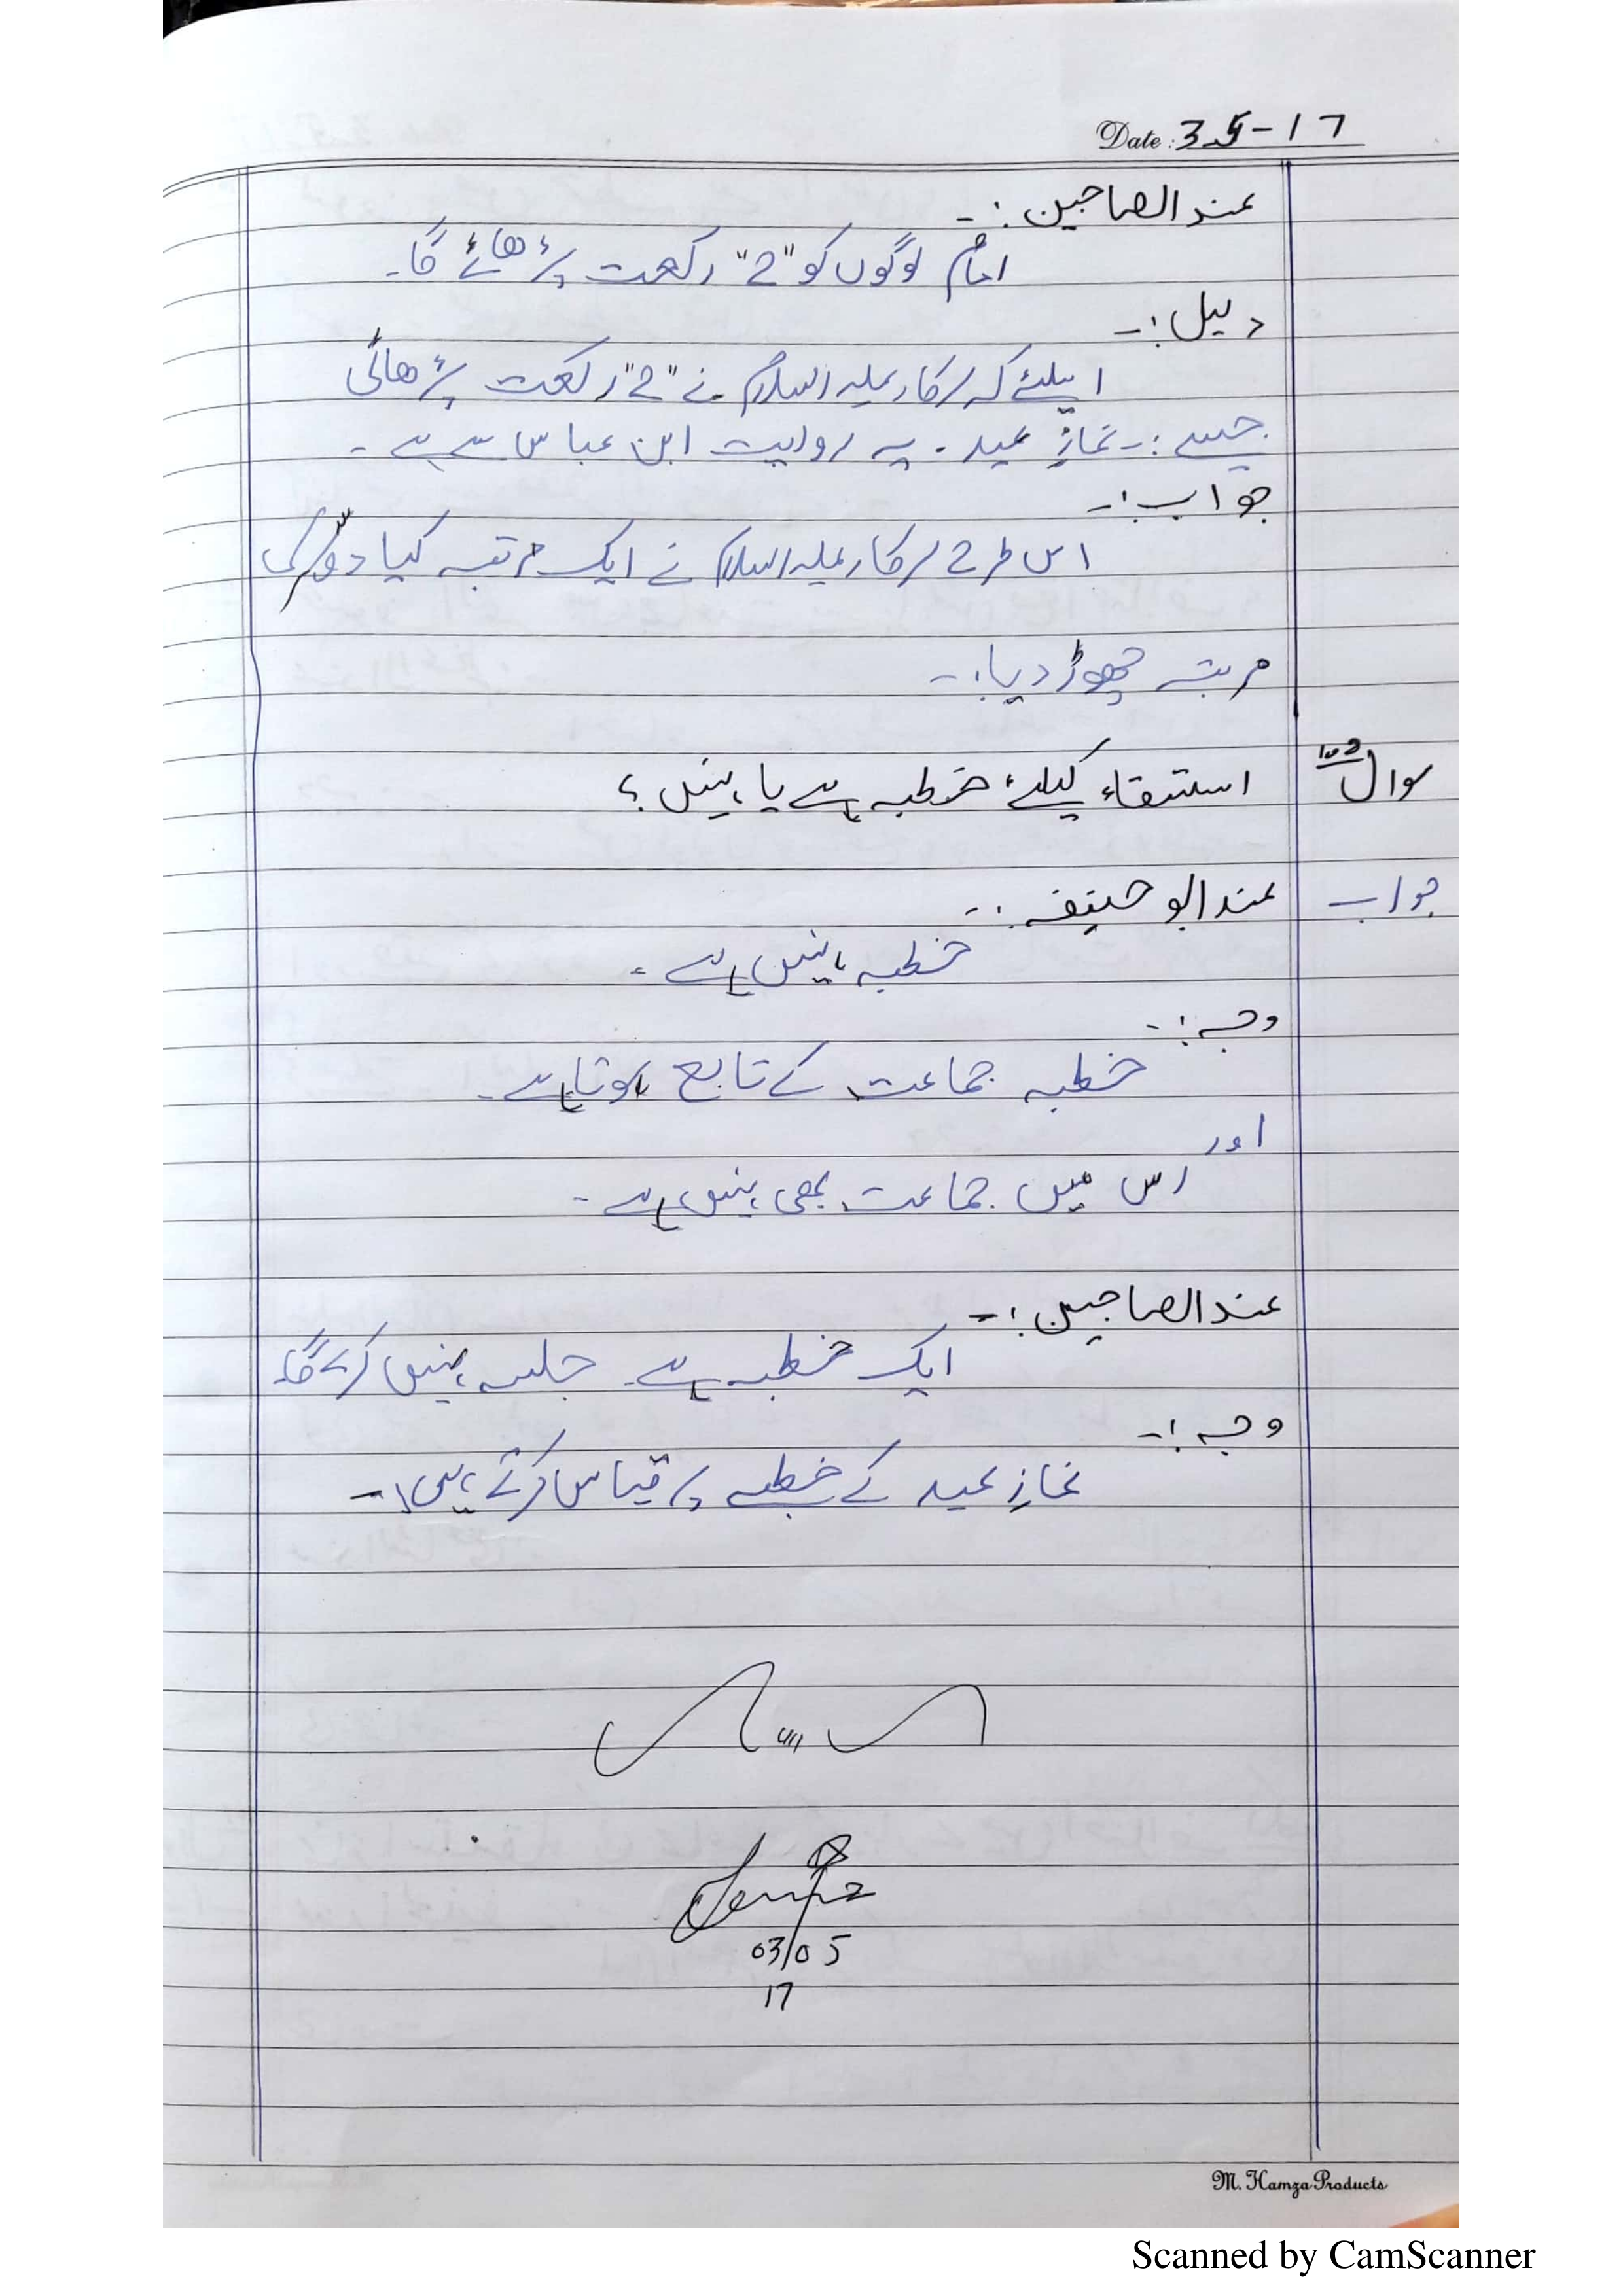 Date: 3-5-17
عندالصاحبین :-
امام لوگوں کو "2" رکعت پڑھائے گا۔
دلیل :-
اسلئے کہ سرکار علیہ السلام نے "2" رکعت پڑھائی
جیسے :- نمازِ عید۔ یہ روایت ابن عباس سے ہے۔
جواب :-
اس طرح سرکار علیہ السلام نے ایک مرتبہ کیا دوسری
مرتبہ چھوڑ دیا :-
سوال استسقاء کیلئے خطبہ ہے یا نہیں؟
جواب عند ابو حنیفہ :-
خطبہ نہیں ہے۔
وجہ :-
خطبہ جماعت کے تابع ہوتا ہے۔
اور
اس میں جماعت بھی نہیں ہے۔
عندالصاحبین :-
ایک خطبہ ہے۔ جلسہ نہیں کرے گا۔
وجہ :-
نمازِ عید کے خطبے پر قیاس کرتے ہیں :-
03/05
17
M. Hamza Products
Scanned by CamScanner